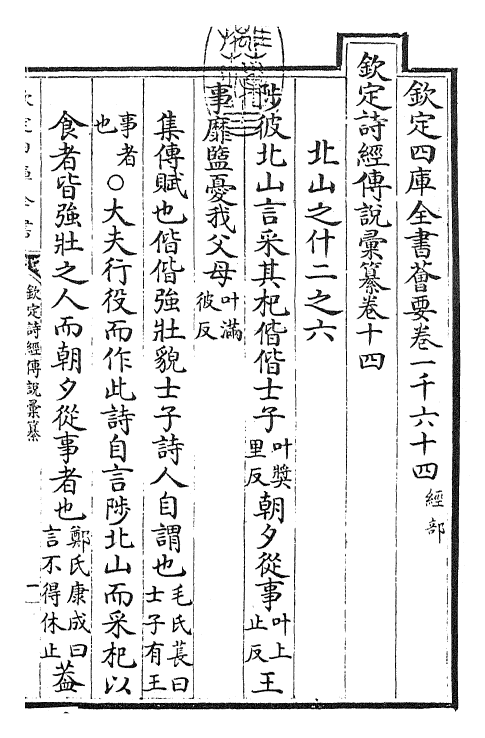 欽定四庫全書薈要卷一千六十四 經部
欽定詩經傳說彙纂卷十四
北山之什二之六
陟彼北山言采其杞偕偕士子叶奬里反朝夕從事叶上止反王
事靡盬憂我父母叶滿彼反
集傳賦也偕偕強壯貌士子詩人自謂也毛氏萇曰士子有王
事者也○大夫行役而作此詩自言陟北山而采杞以
食者皆強壯之人而朝夕從事者也鄭氏康成曰言不得休止葢
欽定詩經傳說彙纂
一